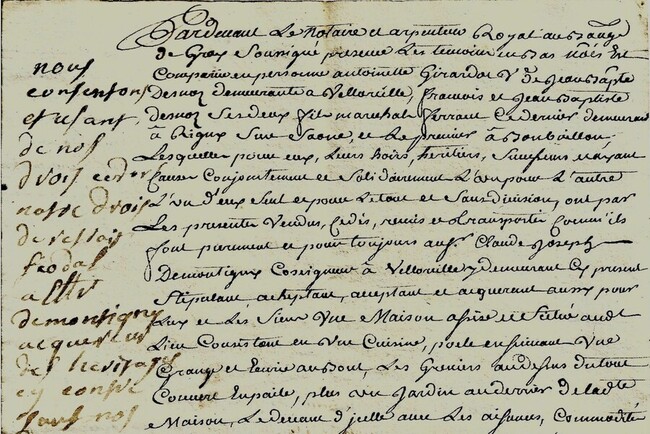 Pardevant Le Notaire et arpenteur Royal au
de Grey Soussigné presens Les temoins en bas només Est
Comparu en personne antoinette Girardot Vve de Jean Bapte
demeurante a Velloreille, francois et Jean Baptiste
ses deux fils marchal ferrant Ce dernier demeurant
à Rigny Sur Saone, et Le premier à bonboillon
Lesquelles pour eux, Leurs hoirs, heritiers, et ayant
Cause Conjointement et Solidairement L'un pour L'autre
L'un d'eux Seul et pour Le tout et Sans division, ont par
Les presentes Vendus, Cedés, remis et transportés Comm'ils
font purement et pour toujours au Sr. Claude Joseph
Demontigny Coseigneur à Velloreille y demeurant Cy present
Stipulant, acheptant, acceptant et acquerant aussi pour
Luy et Les Siens Une Maison assise et Scitué audt
Lieu Consistant en une Cuisine, poele ensuivant Une
Grange et Ecurie au bout, Les Greniers au dessus du tout
Couvert En paille, plus un Jardin au derrier de ladte
Maison, Le devant d'jcelle avec Les aisances, Commodité
nous
consentons
de nos
drois ceder
nostre drois
feodal
a
demontigny
acquereur
des heritages
cy
sans nos